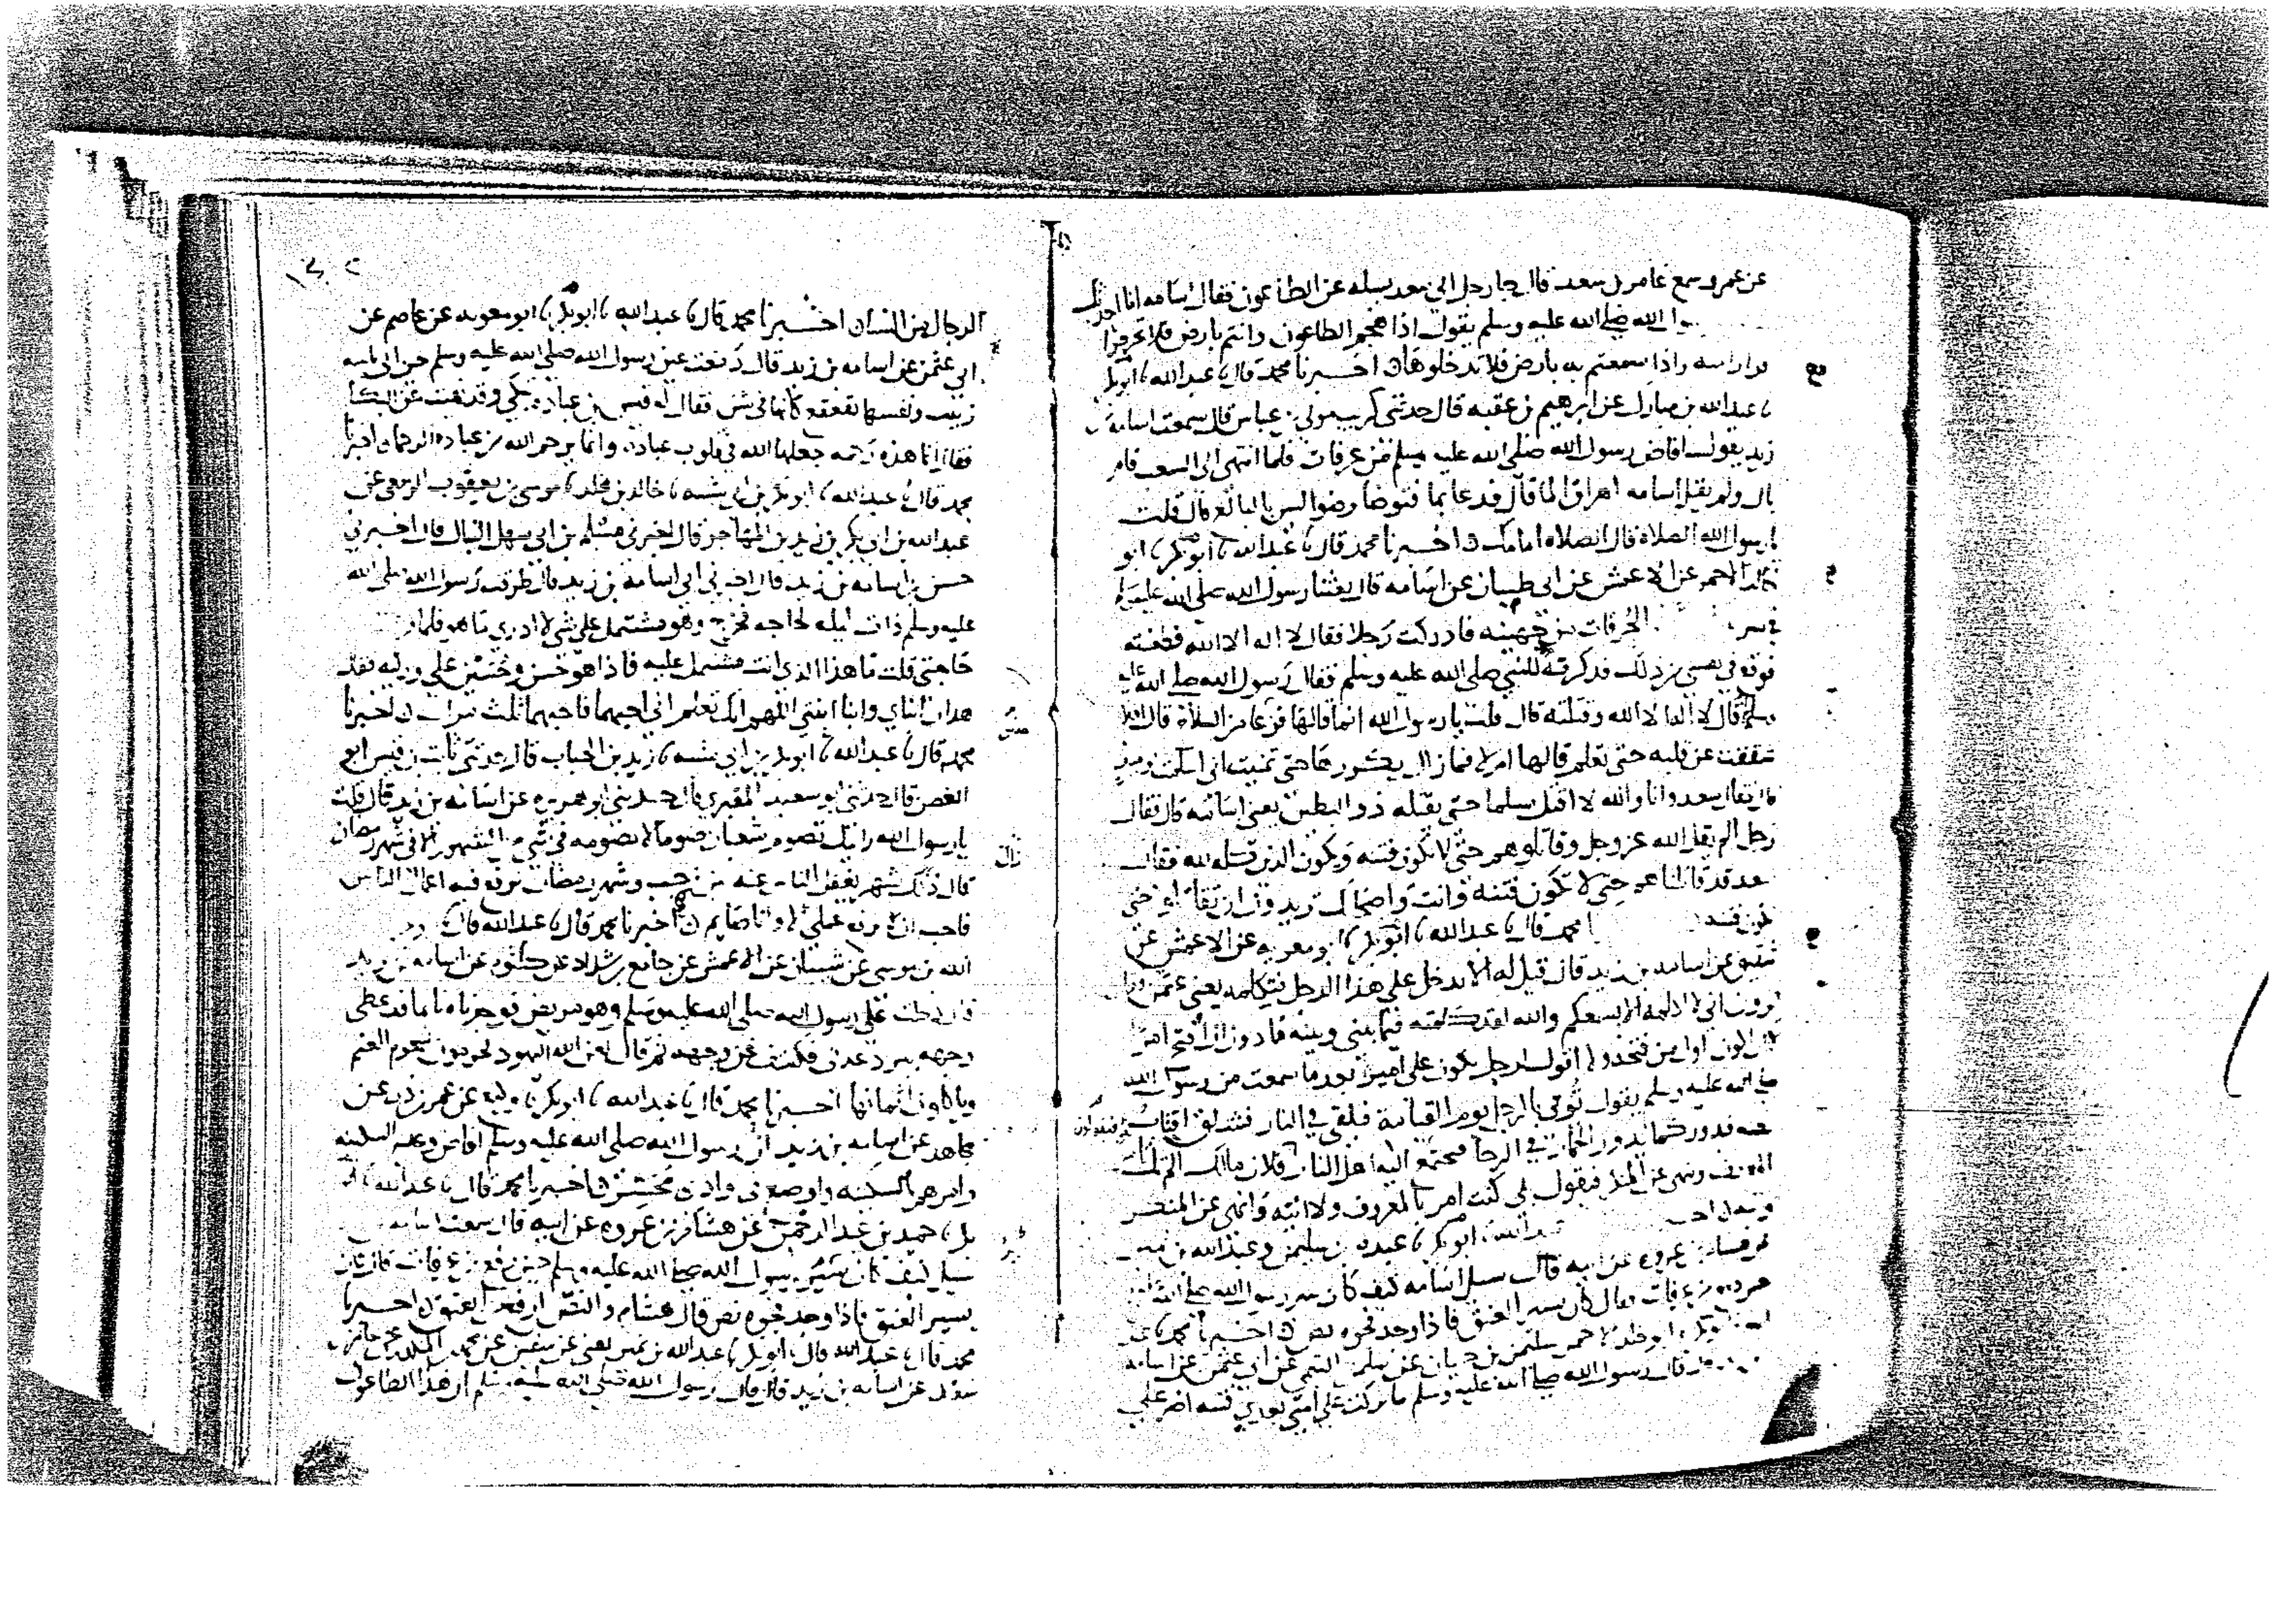 عن عمرو سمع عامر بن سعد قال جا رجل الي سعد يسله عن الطاعون فقال اسامه انا احدثك
الله صلى الله عليه وسلم يقول اذا هجم الطاعون وانتم بارض فلا تخرجوا
واذا سمعتم به بارض فلا تدخلوها ن اخــبرنا محمد قال نا عبد الله نا ابو بكر
نا عبد الله بن مبارك عن ابرهيم بن عقبه قال حدثني كريب مولي عباس قال سمعت اسامة بن
زيد يقول افاض رسول الله صلى الله عليه وسلم من عرفات فلما انتهي الى الشعب قام
بال ولم يقل اسامه اهراق الما قال فدعا بما فتوضا وضوا ليس بالبالغ قال قلت
يا رسول الله الصلاة قال الصلاه امامك ن اخــبرنا محمد قال نا عبد الله نا ابو بكر نا ابو
خالد الاحمر عن الاعمش عن ابي ظبيان عن اسامه قال بعثنا رسول الله صلى الله عليه
الحرقات من جهينه فادركت رجلا فقال لا اله الا الله فطعنته
فوقع في نفسي من ذلك فذكرته للنبي صلى الله عليه وسلم فقال رسول الله صلى الله عليه
وسلم قال لا اله الا الله وقتلته قال قلت يا رسول الله انما قالها فرقا من السلاح قال افلا
شققت عن قلبه حتى تعلم قالها ام لا فما زال يكررها حتى تمنيت اني اسلمت يوميذ
قال فقال سعد وانا والله لا اقتل مسلما حتى يقتله ذو البطين يعني اسامه قال فقال
رجل الم يقل الله عز وجل وقاتلوهم حتى لا تكون فتنه ويكون الدين كله لله فقال
سعد قد قاتلنا حتى لا تكون فتنه وانت واصحابك تريدون ان تقاتلوا حتى
تكون فتنه محمد قال نا عبد الله نا ابو بكر نا ابو معويه عن الاعمش عن
شقيق عن اسامه بن زيد قال قيل له الا تدخل على هذا الرجل فتكلمه يعني عثمن
ترون اني لا اكلمه الا اسمعكم والله لقد كلمته فيما بيني وبينه ما دون ان افتح امرا
لا اكون اول من فتحه ولا اقول لرجل يكون علي اميرا بعد ما سمعت من رسول الله
صلى الله عليه وسلم يقول يوتي بالرجل يوم القيامة فيلقى في النار فتندلق اقتاب
فيدور كما يدور الحمار في الرحا فيجتمع اليه اهل النار فيقولون فلان مالك الم تك
المعروف وتنهى عن المنكر فيقول بلى كنت امر بالمعروف ولا اتيه وانهى عن المنكر
عبد الله نا ابو بكر نا عبده بن سليمن وعبد الله بن نمير
عن هشام بن عروه عن ابيه قال سيل اسامه كيف كان سير رسول الله صلى الله
من عرفات فقال كان يسير العنق فاذا وجد فجوه نص ن اخــبرنا محمد نا عبد
ابو خالد الاحمر سليمن بن حيان عن سليمن التيمي عن ابي عثمن عن اسامه
قال رسول الله صلى الله عليه وسلم ما تركت علي امتي بعدي فتنه اضر علي
الرجال من النسا ن اخــبرنا محمد قال نا عبد الله نا ابو بكر نا ابو معويه عن عاصم عن
ابي عثمن عن اسامه بن زيد قال دمعت عين رسول الله صلى الله عليه وسلم حين اتي بابنه
زينب ونفسها تقعقع كانها في شن فقال له قيس بن عباده تبكي وقد نهيت عن البكا
فقال انما هذه رحمه جعلها الله في قلوب عباده وانما يرحم الله من عباده الرحما ن اخبرنا
محمد قال نا عبد الله نا ابو بكر بن ابي شيبه نا خالد بن مخلد نا موسى بن يعقوب الزمعي عن
عبد الله بن ابي بكر بن زيد بن المهاجر قال اخبرني مسلم بن ابي سهل النبال قال اخبرني
حسن بن اسامه بن زيد قال اخبرني ابي اسامة بن زيد قال طرقت رسول الله صلى الله
عليه وسلم ذات ليله لحاجه فخرج وهو مشتمل على شي لا ادري ما هو فلما
حاجتي قلت ما هذا الذي انت مشتمل عليه فاذا هو حسن وحسين على وركيه فقال
هذان ابناي وابنا ابنتي اللهم انك تعلم اني احبهما فاحبهما ثلث مرات ن اخبرنا
محمد قال نا عبد الله نا ابو بكر بن ابي شيبه نا زيد بن الحباب قال حدثني ثابت بن قيس ابو
الغصن قال حدثني ابو سعيد المقبري قال حدثني ابو هريره عن اسامه بن زيد قال قلت
يا رسول الله رايتك تصوم شعبان صوما لا تصومه في شي من الشهور الا في شهر رمضان
قال ذلك شهر يغفل الناس عنه بين رجب وشهر رمضان ترفع فيه اعمال الناس
فاحب ان لا يرفع عملي الا وانا صايم ن اخبرنا محمد قال نا عبد الله قال
الله بن موسى عن شيبان عن الاعمش عن جامع بن شداد عن كلثوم عن اسامه بن زيد
قال دخلت على رسول الله صلى الله عليه وسلم وهو مريض فوجدناه نايما قد غطى
وجهه ببرد عدني فكشف عن وجهه ثم قال لعن الله اليهود يحرمون شحوم الغنم
وياكلون اثمانها اخــبرنا محمد قال نا عبد الله نا ابو بكر نا وكيع عن عمر بن ذر عن
مجاهد عن اسامه بن زيد ان رسول الله صلى الله عليه وسلم افاض وعليه السكينه
وامرهم بالسكينه واوضع في وادي محسر ن اخبرنا محمد قال نا عبد الله نا ابو
بكر نا حميد بن عبد الرحمن عن هشام بن عروه عن ابيه قال سمعت اسامه
سيل كيف كان يسير رسول الله صلى الله عليه وسلم حين دفع من عرفات قال كان
يسير العنق فاذا وجد فجوه نص قال هشام والنص ارفع من العنق ن اخــبرنا
محمد قال نا عبد الله قال نا ابو بكر نا عبد الله بن نمير يعني عن سفين عن محمد بن المنكدر عن عامر بن
سعد عن اسامه بن زيد قال قال رسول الله صلى الله عليه وسلم ان هذا الطاعون